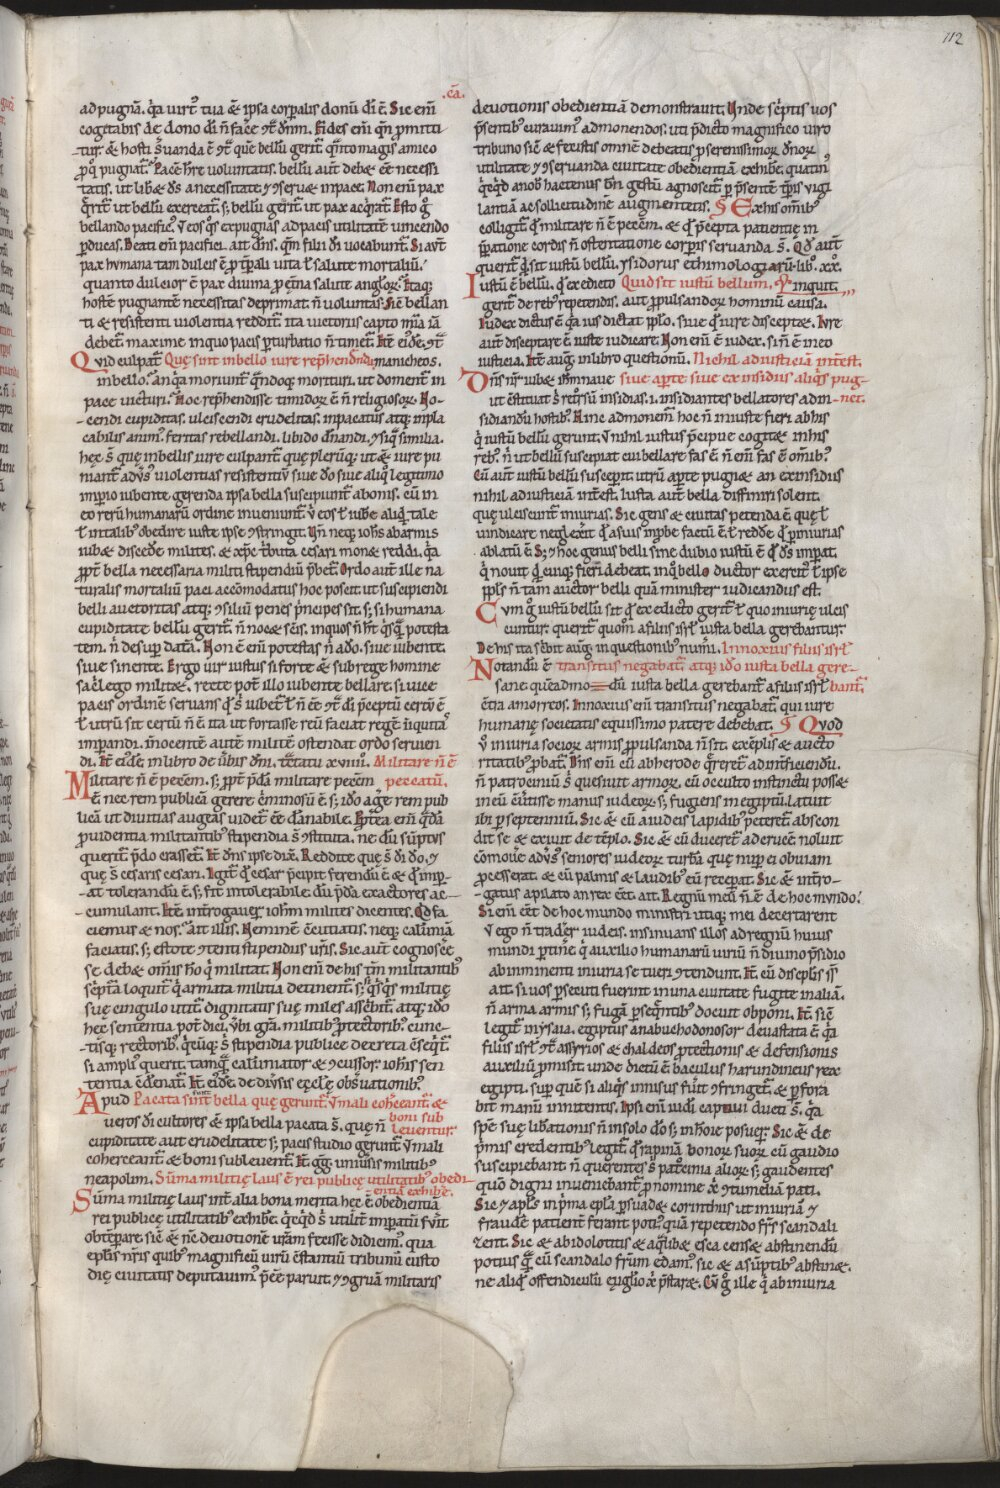 112
.cā.
ad pugnā. q̇a uirt᷒ tua & ipsa corporalis donū dī ē. Sic enī
cogitabis de dono dī ñ face ꝯt̄ dn̄m. Fides enī qn̄ promitti
tur. & hosti s̄uanda ē ꝯt̄ quē bellū gerit᷒. q̄nto magis amico
ꝓ q̇ pugnat᷒. Pacē hr̄e uoluntatis. bellū aut̄ debet ēē necessi
tatis. ut lib&et ds̄ a necessitate ⁊ ꝯserū& in pace. Non enī pax
q̄rit᷒ ut bellū exerceat᷒. s; bellū gerit᷒ ut pax acq̇rat᷒. Esto g̊
bellando pacific᷒. ut eos q̇s expugnas ad pacis utilitatē uincendo
ꝑducas. Beati enī pacifici. ait dn̄s. qm̄ filii dī uocabunt᷒. Si aut̄
pax humana tam dulcis ē ꝓ tēporali uita ł salute mortaliū.
quanto dulcior ē pax diuina ꝓ ēt̄na salute angloꝝ. Itaq;
hostē pugnantē necessitas deprimat. ñ uoluntas. Sic bellan
ti & resistenti uiolentia reddit᷒. ita uictori capto mīa iā
debet᷒. maxime in quo pacis ꝑturbatio ñ timet᷒. It̄ eid̄e. ꝯt̄
Quid culpat᷒ Quę sint in bello iure rep̄hendenda. manicheos.
in bello. an q̇a moriunt᷒ q̄ndoq; morituri. ut domenť in
pace uicturi. Hoc rep̄hendisse timidoꝝ ē ñ religiosoꝝ. No-
cendi cupiditas. ulciscendi crudelitas. inpacatus atq; inpla
cabilis anim᷒. feritas rebellandi. libido dn̄andi. ⁊ siq̄ similia.
hęc s̄ quę in bellis iure culpant᷒. quę plerūq; ut & iure pu
niant᷒ aduꝰs᷒ uiolentias resistentiū siue dō siue aliq̇ legitimo
imperio iubente. gerenda ipsa bella suscipiunt᷒ a bonis. cū in
eo rerū humanarū ordine inueniunt᷒. ubi eos ł iub&e aliq̇d tale
ł in talib᷒ obedire iuste ipse ꝯstringit. Un̄ neq; iohs̄ ab armis
iub& discedē milites. & xp̄c tributa cesari monet reddi. q̇a
ꝓpt̄ bella necessaria militi stipendiū p̄bet᷒. Ordo aut̄ ille na
turalis mortaliū paci accōmodatus hoc poscit. ut suscipiendi
belli auctoritas atq; ꝯsiliū penes p̄ncipes sit. s; si humana
cupiditate bellū gerit᷒. ñ noc& scīs. in quos ñ ht̄ q̇sq̄ potesta
tem. ñ desup data. Non ē enī potestas ñ a dō. siue iubente.
siue sinente. Ergo uir iustus si forte & sub rege homine
sac̄lego milit&. recte pot̄ illo iubente bellare. si uice
pacis ordinē seruans q̇ s̄ iub&t᷒ ł ñ ēē ꝯt̄ dī p̄ceptū certū ē
ł utrū sit certū ñ ē. ita ut fortasse reū faciat regē iniquita᷒
imperandi. innocentē autē militē ostendat ordo seruien
di. It̄ eid̄e in libro de u̇bis dn̄i. t̄ctatu xviiii. Militare ñ ē
Militare ñ ē peccm̄. s; ꝓpt̄ p̄dā militare peccm̄ peccatū.
ē. nec rem publicā gerere criminosū ē. s; idō ag̊e rem pub
licā ut diuitias augeas. uidet᷒ ēē dānabile. Ꝓpt̄ea enī q̄dā
ꝓuidentia militantib᷒ stipendia s̄ ꝯstituta. ne dū sūptus
querit᷒. p̄do crasset᷒. It̄ dn̄s ipse dix&. Reddite quę s̄ dī dō. ⁊
quę s̄ cesaris cesari. Igit᷒ q̇d cesar p̄cipit ferendū ē. & q̇d imp̄-
at tolerandū ē. s; fit intolerabile. dū p̄da exactores ac-
cumulant. It̄. Int̄rogauerꝝ iohm̄ milites dicentes. Qd̄ fa
ciemus & nos. Ait illis. Neminē c̄cutiatis. neq; calūniā
faciatis. s; estote ꝯtenti stipendiis ur̄is. Sic aut̄ cognosc̄e
se deb& om̄is hō q̇ militat. Non enī de his tm̄ militantib᷒
sc̄pt̄a loquit᷒. q̇ armata militia detinent᷒. s; q̇sq̇s militię
suę cingulo utit᷒. dignitatis suę miles asc̄bit᷒. atq; idō
hęc sententia pot̄ dici. ubi gr̄a. militib᷒ ꝓtectorib᷒. cunc-
tisq; rectorib᷒. q̇cūq; s̄ stipendia publice decreta c̄seq̇t᷒.
si ampli᷒ querit. tamq̄ calūniator & ꝯcussor. iohis sen
tentia c̄dēnat᷒. It̄ eid̄e. de diu̇sis ecclę obs̄uationib᷒.
Apud Pacata sunt bella quę gerunt᷒. ut mali coherceant᷒. &
ueros dī cultores & ipsa bella pacata s̄. quę ñ boni sub
cupiditate aut crudelitate s; pacis studio gerunt᷒. ut mali leuentur.
cohercean᷒ & boni subleuent᷒. It̄ gg̊. uniūsis militib᷒
neapolim. Sūma militię laus ē rei publicę utilitatib᷒ obedi
Sūma militię laus int̄ alia bona merita hęc ē. obedientiā entiā exhib̄e.
rei publicę utilitatib᷒ exhib̄e. q̇cq̇d s̄ utilit᷒ imperatū fu̇it
obt̄perare. sic & nc̄ deuotionē ur̄am fecisse didicim᷒. qua
eplis nr̄is quib᷒ magnificū uirū c̄stantiū tribunū custo
dię ciuitatis deputauim᷒. p̄cēpe paruit. ⁊ ꝯgruā militaris
deuotionis obedientiā demonstrauit. Unde sc̄ptis uos
p̄sentib᷒ curauim᷒ admonendos. uti p̄dicto magnifico uiro
tribuno sic & fecistis omnē debeatis ꝓ serenissimoꝝ dn̄oꝝ
utilitate ⁊ ꝯseruanda ciuitate obedientiā exhib̄e. quatin᷒
q̇cq̇d a nob᷒ hactenus bn̄ gestū agnoscit᷒. ꝑ p̄sentē t̄pis uigi
lantiā ac sollicitudinē augmentetis. § Ex his om̄ib᷒
colligit᷒ q̇d militare ñ ē peccm̄. & q̇ p̄cepta patientię in
p̄paratione cordis ñ ostentatione corp̄is seruanda s̄. Qd̄ aut̄
querit᷒ q̇d sit iustū bellū. ysidorus ethimologiarū. lib᷒. xx.
Iustū ē bellū. q̇d ex edicto Quid sit iustū bellum. inquit.
gerit᷒ de reb᷒ repetendis. aut ꝓpulsandoꝝ hominū causa.
Iudex dictus ē q̇a ius dictat ipplo. siue q̇d iure disceptet. Iure
aut̄ disceptare ē iuste iudicare. Non enī ē iudex. si ñ ē in eo
iusticia. It̄ aug᷒. in libro questionū. Nichil ad iusticiā int̄est.
Dn̄s nr̄ iub& ih̄u naue siue aperte siue ex insidiis aliq̇s pug-
ut c̄stituat s̄ ret̊rsū insidias. i. insidiantes bellatores ad in- net.
sidiandū hostib᷒. Hinc admonem᷒ hoc ñ iniuste fieri ab his
q̇ iustū bellū gerunt. ut nihil iustus p̄cipue cogit& in his
reb᷒. n̄ ut bellū suscipiat cui bellare fas ē. ñ enī fas ē om̄ib᷒.
Cū aut̄ iustū bellū susceꝑit. utrū aperte pugn& an ex insidiis
nihil ad iusticiā int̄est. Iusta aut̄ bella diffiniri solent.
quę ulciscunt᷒ iniurias. Sic gens & ciuitas petenda ē. quę ł
uindicare neglexerit q̇d a suis inp̄be factū ē. ł reddē q̇d ꝑ iniurias
ablatū ē. S; ⁊ hoc genus belli sine dubio iustū ē q̇d ds̄ imperat.
q̇ nouit q̇d cuiq; fieri debeat. in q̇ bello ductor exercit᷒ ł ipse
ppl̄s ñ tam auctor belli quā minister iudicandus est.
Cum g̊ iustū bellū sit q̇d ex edicto gerit᷒ ł quo iniurię ulcis
cuntur. querit᷒ quom̊ a filiis isrł iusta bella gerebantur.
De his ita sc̄bit aug᷒. in questionib᷒ num̄i. Innoxius filiis isrł
Notandū ē transitus negabat᷒. atq; idō iusta bella gere-
sane quēadmodū iusta bella gerebant᷒ a filiis isrł bant᷒.
c̄tra amorreos. Innoxius enī transitus negabat᷒. qui iure
humanę societatis equissimo patere debebat. § Quod
u̇ iniuria socioꝝ armis ꝓpulsanda ñ sit. exēplis & aucto
ritatib᷒ ꝓbat᷒. Dn̄s enī cū ab herode q̇reret᷒ ad int̄ficiendū.
ñ patrociniū s̄ quesiuit armoꝝ. cū occulto instinctu poss&
in eū c̄citisse manus iudeoꝝ. s; fugiens in egiptū. latuit
ibi ꝑ septenniū. Sic & cū a iudeis lapidib᷒ peteret᷒. abscon
dit se & exiuit de tēplo. Sic & cū duceret᷒ ad crucē. noluit
cōmouē aduꝰs᷒ seniores iudeoꝝ turbā. quę nup ei obuiam
ꝓcesserat. & cū palmis & laudib᷒ eū receperat. Sic & intro-
gatus a pilato an rex ēēt. ait. Regnū meū ñ ē de hoc mundo.
Si enī ēēt de hoc mundo ministri utiq; mei decertarent
ut ego ñ trader̄ iudeis. insinuans illos ad regnū huius
mundi ꝑtinē. q̇ auxilio humanarū uiriū ñ diuino p̄sidio
ab imminenti iniuria se tueri ꝯtendunt. It̄ cū disciplis
ait. si uos ꝑsecuti fuerint in una ciuitate fugite in aliā.
ñ arma armis s; fugā ꝑseq̄ntib᷒ docuit obponi. It̄ sic̄
legit᷒ in ysaia. egiptus a nabuchodonosor deuastata ē q̇a
filiis isrł ꝯt̄ assyrios & chaldeos ꝓtectionis & defensionis
auxiliū ꝓmisit. unde dictū ē. baculus harundineus rex
egipti. sup quē si aliq̇s innisus fuit ꝯfringet᷒. & perfora
bit manū innitentis. Ipsi enī iudei captiui ducti s̄. q̇a
spē suę lib̄ationis ñ in solo dō s; in hoie posuerꝝ. Sic & de
p̄mis credentib᷒ legit᷒. q̇d rapinā bonoꝝ suoꝝ cū gaudio
suscipiebant. ñ querentes s̄ patrocinia alioꝝ. s; gaudentes
quō digni inueniebant᷒ ꝓ nomine x̄ ꝯtumeliā pati.
Sic ⁊ apl̄s in p̄ma epla ꝑsuad& corinthiis ut iniuriā ⁊
fraudē patient᷒ ferant poti᷒. quā repetendo fr̄s scandali
zent. Sic & ab idolotitis & aq̇lib& esca cens& abstinendū
potius q̄ cū scandalo fr̄um edam᷒. sic & a sūptib᷒ abstin&.
ne aliq̇d offendiculū euglio x̄ p̄star&. Cū g̊ ille q̇ ab iniuria